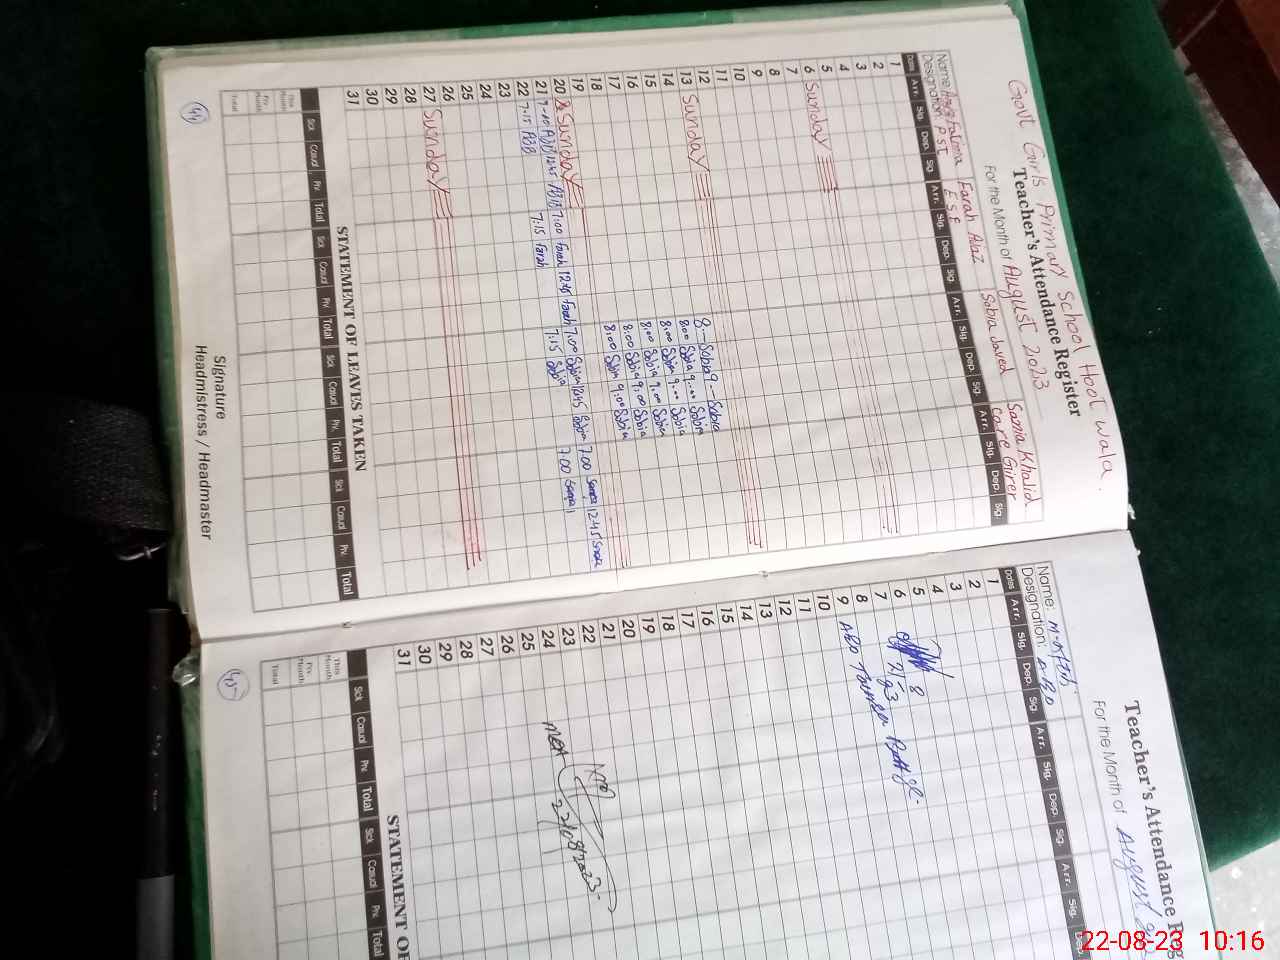 Govt Girls Primary School Hootwala.
Teacher's Attendance Register
For the Month of August 2023
Name: Fatima Farah Sobia Javed Samia Khalid
Designation: PST ESE Care Giver
Dates Arr. Sig. Dep. Sig. Arr. Sig. Dep. Sig. Arr. Sig. Dep. Sig. Arr. Sig. Dep. Sig.
1
2
3
4
5
6 Sunday
7
8
9
10
11
12 8:— Sobia 9:— Sobia
13 Sunday 8:00 Sobia 9:— Sobia
14 8:00 Sobia 9:00 Sobia
15 8:00 Sobia 9:00 Sobia
16 8:00 Sobia 9:00 Sobia
17 8:00 Sobia 9:00 Sobia
18
19
20 Sunday
21 7:10 12:45 7:00 Farah 12:45 Farah 7:00 Sobia 12:45 Sobia 7:00 Samia 12:45 Samia
22 7:15 7:15 Farah 7:15 Sobia 7:00
23
24
25
26
27 Sunday
28
29
30
31
STATEMENT OF LEAVES TAKEN
Sick Casual Prv. Total Sick Casual Prv. Total Sick Casual Prv. Total Sick Casual Prv. Total
This Month
Prv. Month
Total
Signature
Headmistress / Headmaster
44
Teacher's Attendance Reg
For the Month of August
Name:
Designation: AEO
Dates Arr. Sig. Dep. Sig. Arr. Sig. Dep. Sig. Arr. Sig. Dep.
1
2
3
4
5
6
7
8
9 AEO
10
11
12
13
14
15
16
17
18
19
20
21
22
23
24 MEA
22/08/2023
25
26
27
28
29
30
31
STATEMENT OF
Sick Casual Prv. Total Sick Casual Prv. Total
This Month
Prv. Month
Total
45
22-08-23 10:16